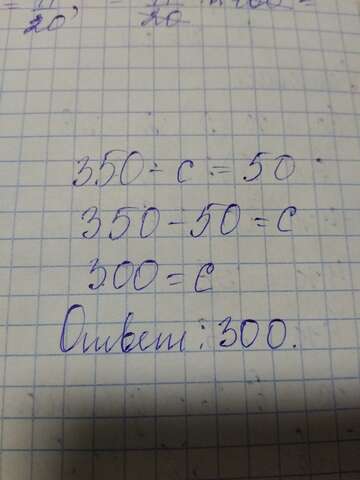 = 11/20, = 11/20
350 - c = 50
350 - 50 = c
300 = c
Ответ: 300.